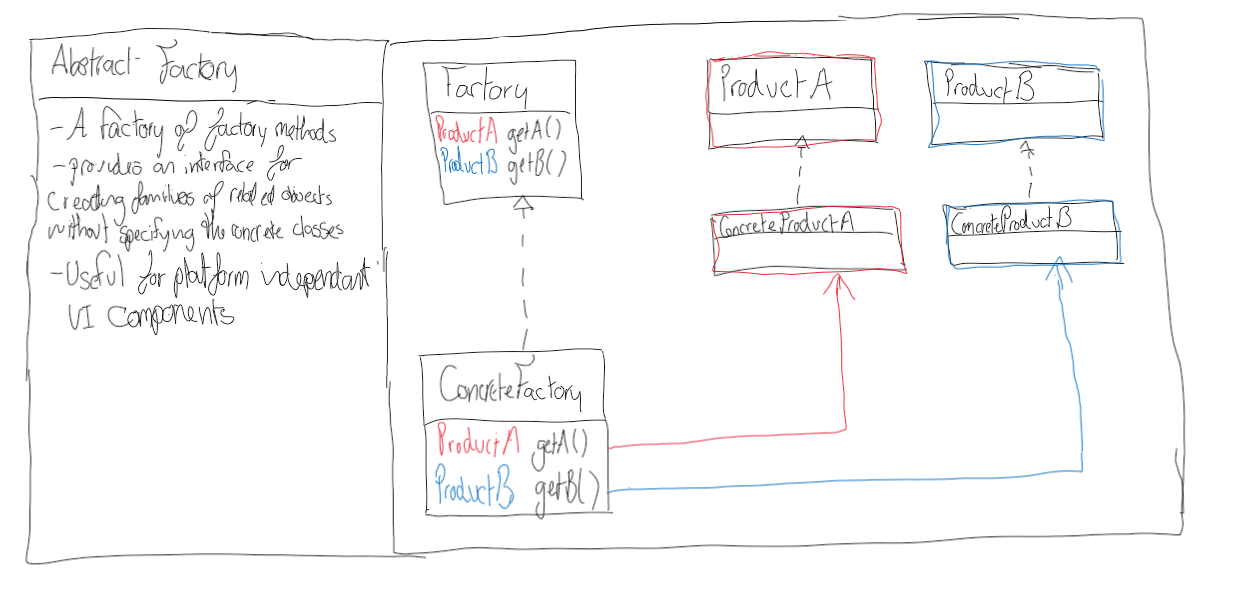 Abstract Factory
- A factory of factory methods
- provides an interface for
creating families of related objects
without specifying the concrete classes
- Useful for platform independant
UI Components
Factory
ProductA getA()
ProductB getB()
ProductA
ProductB
ConcreteProductA
ConcreteProductB
ConcreteFactory
ProductA getA()
ProductB getB()